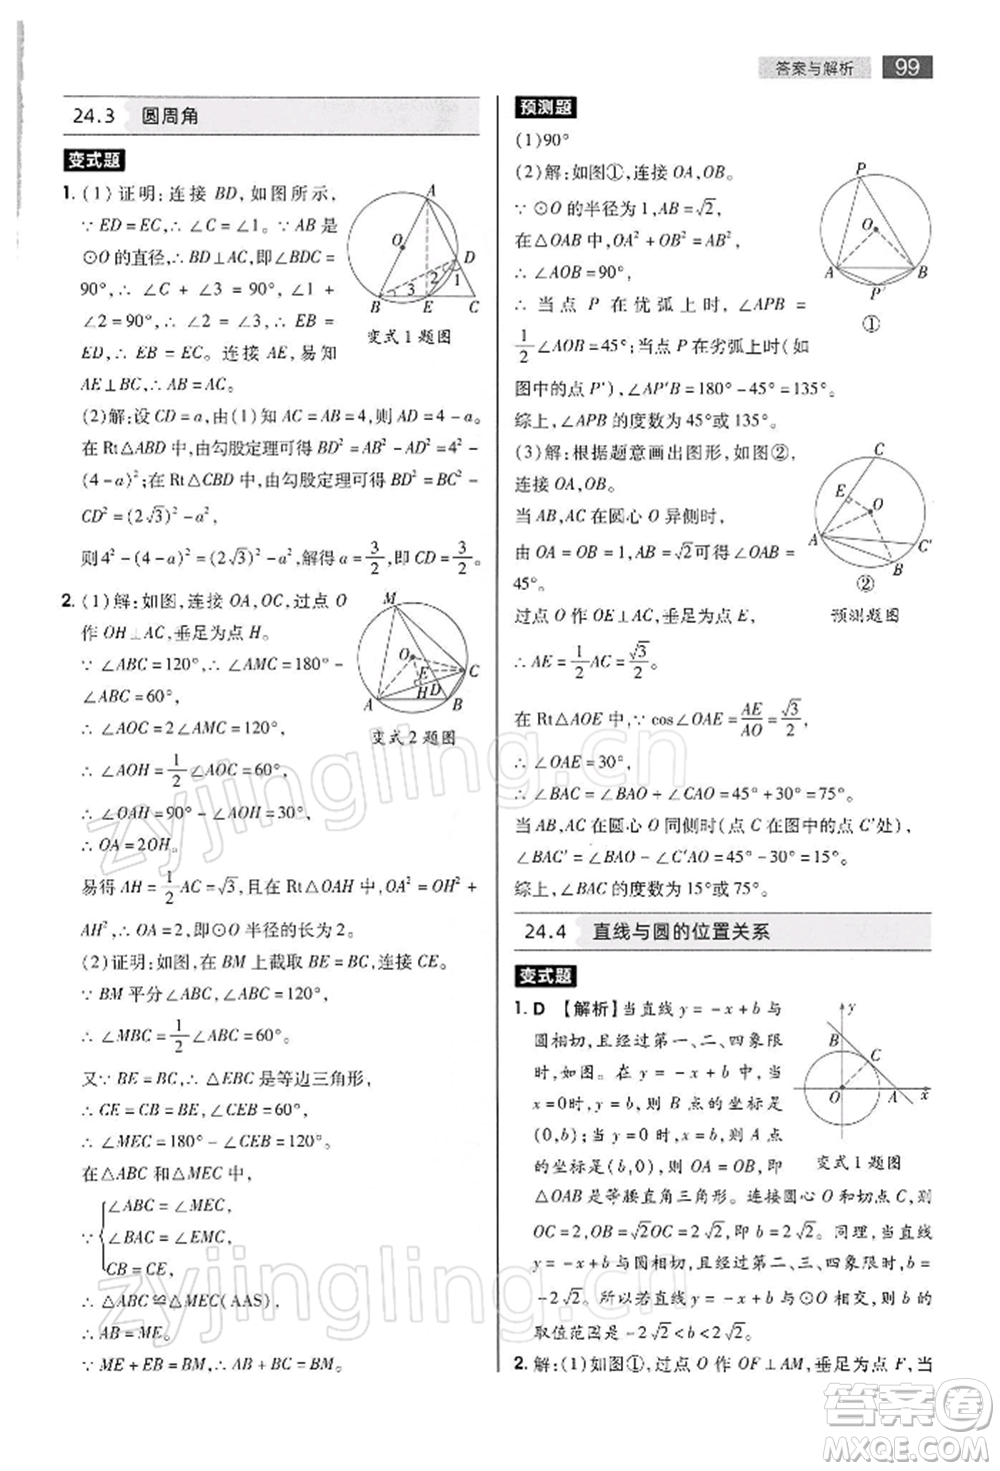 答案与解析 99
24.3 圆周角
变式题
1. (1)证明:连接 BD,如图所示,
∵ ED=EC,∴ ∠C=∠1。∵ AB 是
⊙O 的直径,∴ BD⊥AC,即∠BDC=
90°,∴ ∠C+∠3=90°,∠1+
∠2=90°,∴ ∠2=∠3,∴ EB=
ED,∴ EB=EC。连接 AE,易知
AE⊥BC,∴ AB=AC。
A
O
D
2
3
1
B
E
C
变式1题图
(2)解:设 CD=a,由(1)知 AC=AB=4,则 AD=4-a。
在 Rt△ABD 中,由勾股定理可得 BD²=AB²-AD²=4²-
(4-a)²;在 Rt△CBD 中,由勾股定理可得 BD²=BC²-
CD²=(2√3)²-a²,
则 4²-(4-a)²=(2√3)²-a²,解得 a=3/2,即 CD=3/2。
2. (1)解:如图,连接 OA,OC,过点 O
作 OH⊥AC,垂足为点 H。
∵ ∠ABC=120°,∴ ∠AMC=180°-
∠ABC=60°,
∴ ∠AOC=2∠AMC=120°,
∴ ∠AOH=1/2∠AOC=60°,
∴ ∠OAH=90°-∠AOH=30°,
∴ OA=2OH。
M
O
E
C
H
D
A
B
变式2题图
易得 AH=1/2AC=√3,且在 Rt△OAH 中,OA²=OH²+
AH²,∴ OA=2,即⊙O 半径的长为 2。
(2)证明:如图,在 BM 上截取 BE=BC,连接 CE。
∵ BM 平分∠ABC,∠ABC=120°,
∴ ∠MBC=1/2∠ABC=60°。
又∵ BE=BC,∴ △EBC 是等边三角形,
∴ CE=CB=BE,∠CEB=60°,
∴ ∠MEC=180°-∠CEB=120°。
在△ABC 和△MEC 中,
∠ABC=∠MEC,
∵ ∠BAC=∠EMC,
CB=CE,
∴ △ABC≌△MEC(AAS),
∴ AB=ME。
∵ ME+EB=BM,
预测题
(1)90°
(2)解:如图①,连接 OA,OB。
∵ ⊙O 的半径为 1,AB=√2,
在△OAB 中,OA²+OB²=AB²,
∴ ∠AOB=90°,
∴ 当点 P 在优弧上时,∠APB=
1/2∠AOB=45°;当点 P 在劣弧上时(如
图中的点 P′),∠AP′B=180°-45°=135°。
综上,∠APB 的度数为 45°或 135°。
P
O
A
B
P′
①
(3)解:根据题意画出图形,如图②,
连接 OA,OB。
当 AB,AC 在圆心 O 异侧时,
由 OA=OB=1,AB=√2可得∠OAB=
45°。
过点 O 作 OE⊥AC,垂足为点 E,
∴ AE=1/2AC=√3/2。
C
E
O
A
C′
B
②
预测题图
在 Rt△AOE 中,∵ cos∠OAE=AE/AO=√3/2,
∴ ∠OAE=30°,
∴ ∠BAC=∠BAO+∠CAO=45°+30°=75°。
当 AB,AC 在圆心 O 同侧时(点 C 在图中的点 C′处),
∠BAC′=∠BAO-∠CAO=45°-30°=15°。
综上,∠BAC 的度数为 15°或 75°。
24.4 直线与圆的位置关系
变式题
1. D 【解析】当直线 y=-x+b 与
圆相切,且经过第一、二、四象限
时,如图。在 y=-x+b 中,当
x=0时,y=b,则 B 点的坐标是
(0,b);当 y=0 时,x=b,则 A 点
的坐标是(b,0),则 OA=OB,即
△OAB 是等腰直角三角形。连接圆心 O 和切点 C,则
OC=2,OB=√2OC=2√2,即 b=2√2。同理,当直线
y=-x+b 与圆相切,且经过第二、三、四象限时,b=
-2√2。所以若直线 y=-x+b 与⊙O 相交,则 b 的
取值范围是-2√2<b<2√2。
y
B
C
O
A
x
变式1题图
2. 解:(1)如图①,过点 O 作 OF⊥AM,垂足为点 F,当
zyjingling.cn
zyjingling.cn
答案圈
MXQE.COM